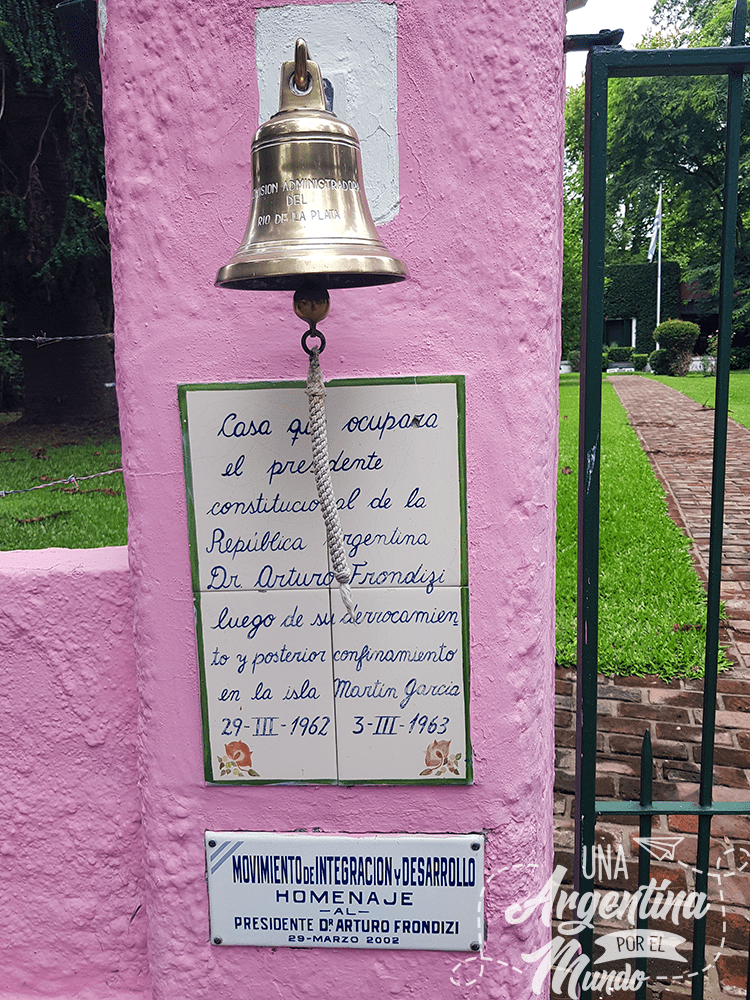 COMISION ADMINISTRADORA
DEL
RIO DE LA PLATA
Casa que ocupara
el presidente
constitucional de la
República Argentina
Dr Arturo Frondizi
luego de su derrocamien
to y posterior confinamiento
en la isla Martín García
29-III-1962 3-III-1963
MOVIMIENTO DE INTEGRACION Y DESARROLLO
HOMENAJE
-AL-
PRESIDENTE DR. ARTURO FRONDIZI
29-MARZO 2002
UNA
Argentina
POR EL
Mundo